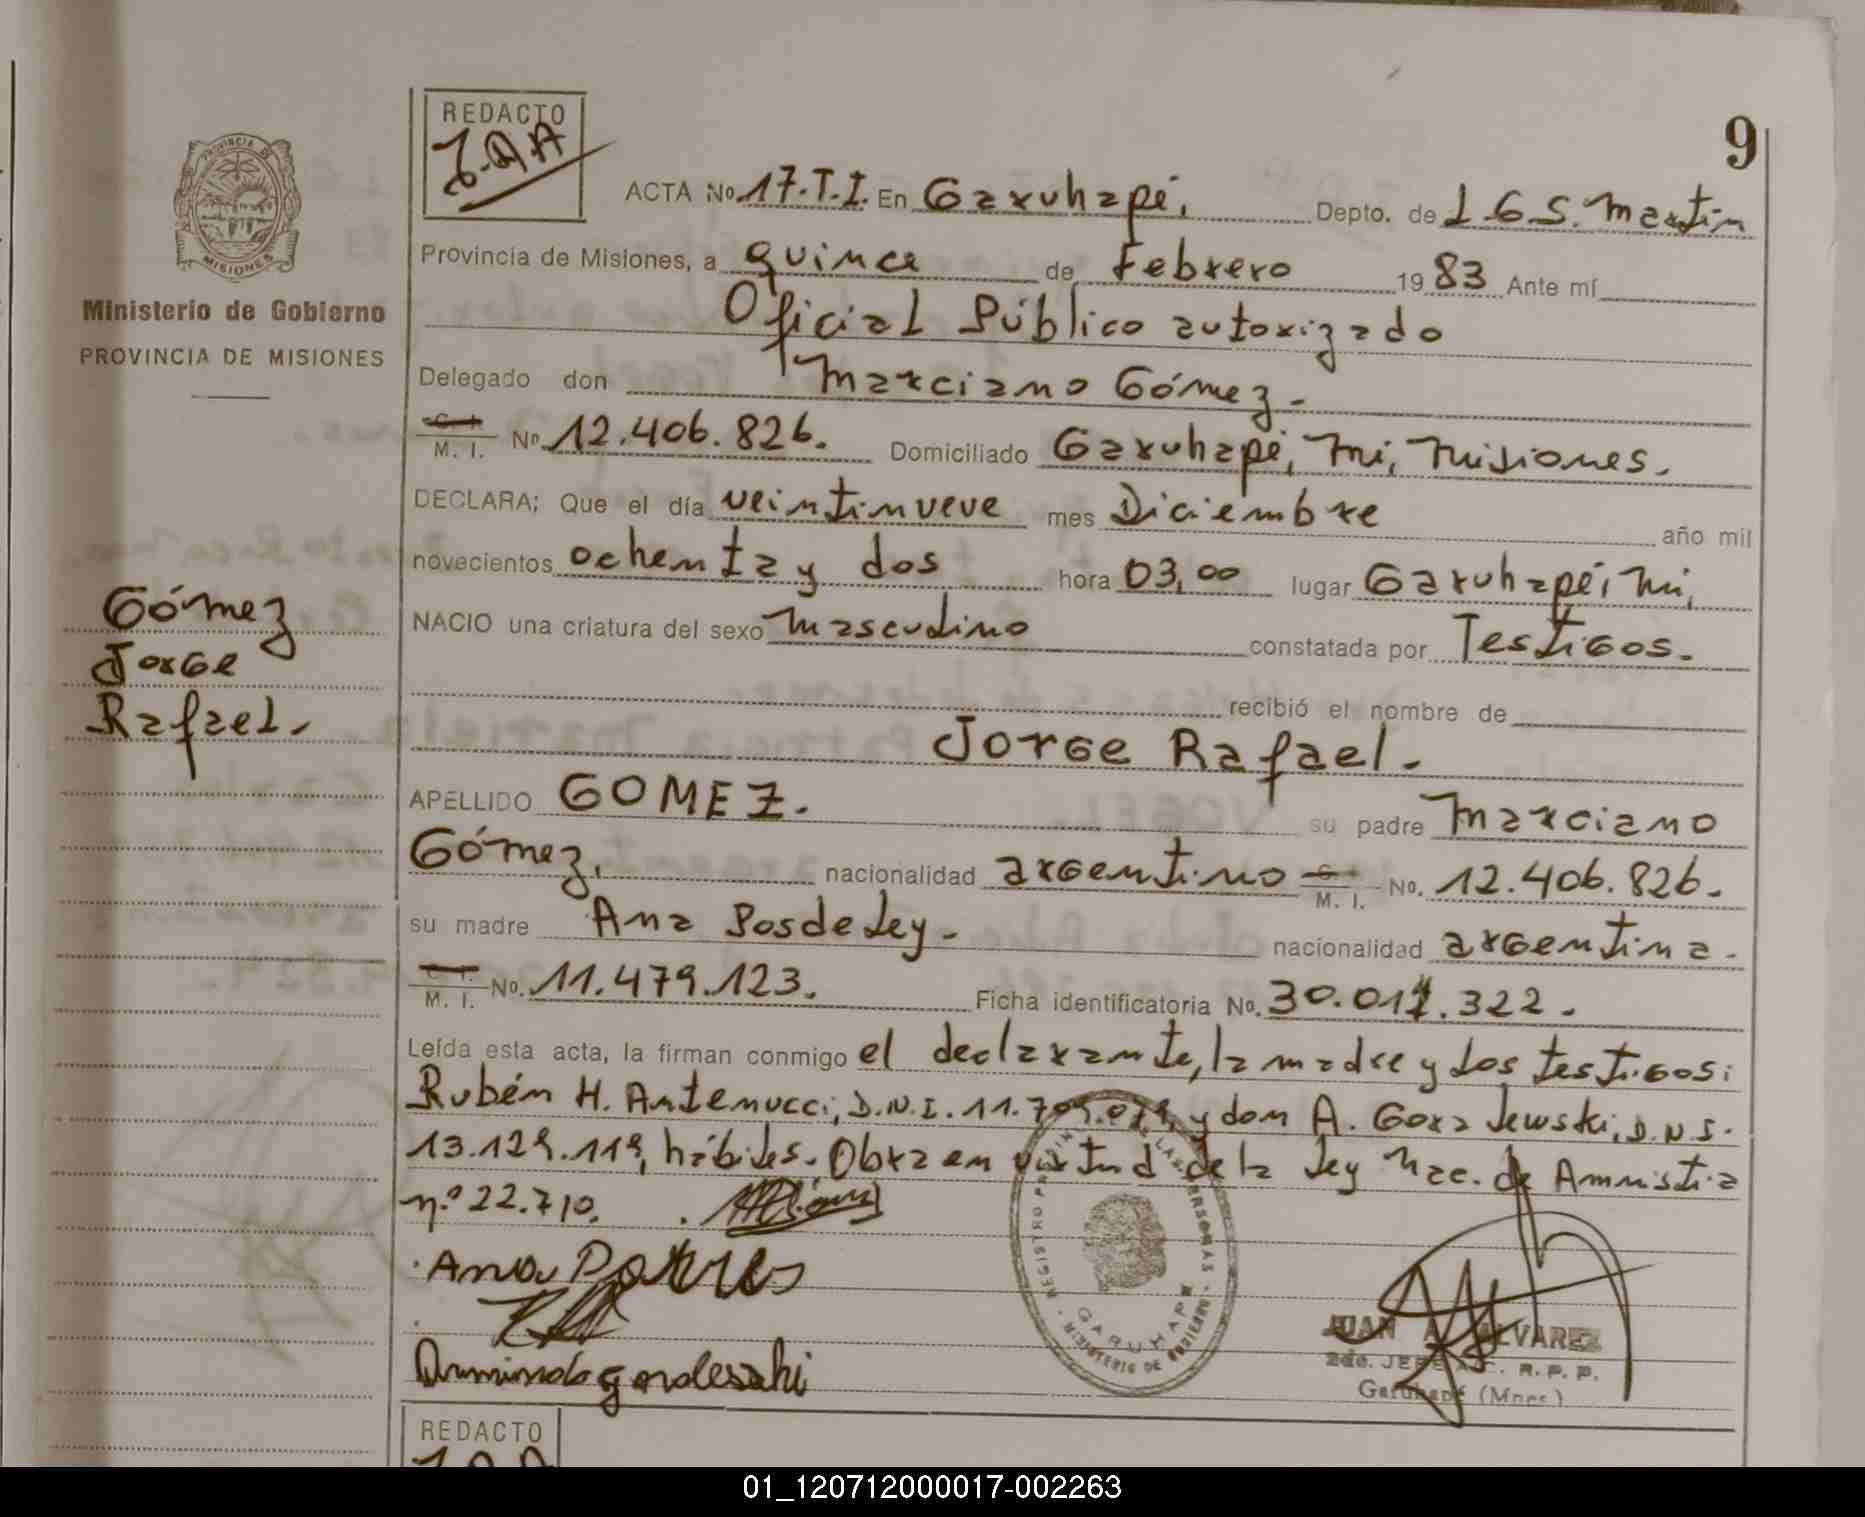 9
REDACTO
J.A.A
ACTA No. 17.T.I. En Garuhapé, Depto. de L.G.S. Martín
PROVINCIA DE MISIONES
Ministerio de Gobierno
PROVINCIA DE MISIONES
Provincia de Misiones, a quince de Febrero 1983 Ante mí
Oficial Público autorizado
Delegado don Marciano Gómez.-
C. I.
M. I. No. 12.406.826. Domiciliado Garuhapé, Mi, Misiones.
DECLARA; Que el día veintinueve mes Diciembre año mil
novecientos ochenta y dos hora 03,00 lugar Garuhapé, Mi,
NACIO una criatura del sexo masculino constatada por Testigos.
recibió el nombre de
Gómez
Jorge
Rafael.
Jorge Rafael.
APELLIDO GOMEZ. su padre Marciano
Gómez, nacionalidad argentino C. I.
M. I. No. 12.406.826.
su madre Ana nacionalidad argentina.
C. I.
M. I. No. 11.479.123. Ficha identificatoria No. 322.
Leída esta acta, la firman conmigo el declarante, la madre y los testigos:
Rubén H. Antenucci, D.N.I. y don A. D.N.I.
13.129.119, hábiles. Obra en virtud de la ley Nac. de Amnistia
n.º 22.710.
Ana
REGISTRO PROVINCIAL DE LAS PERSONAS
GARUHAPE
MINISTERIO DE GOBIERNO
JUAN A. ALVAREZ
2do. JEFE R. P. P.
Garuhapé (Mnes.)
REDACTO
J.A.A
01_120712000017-002263